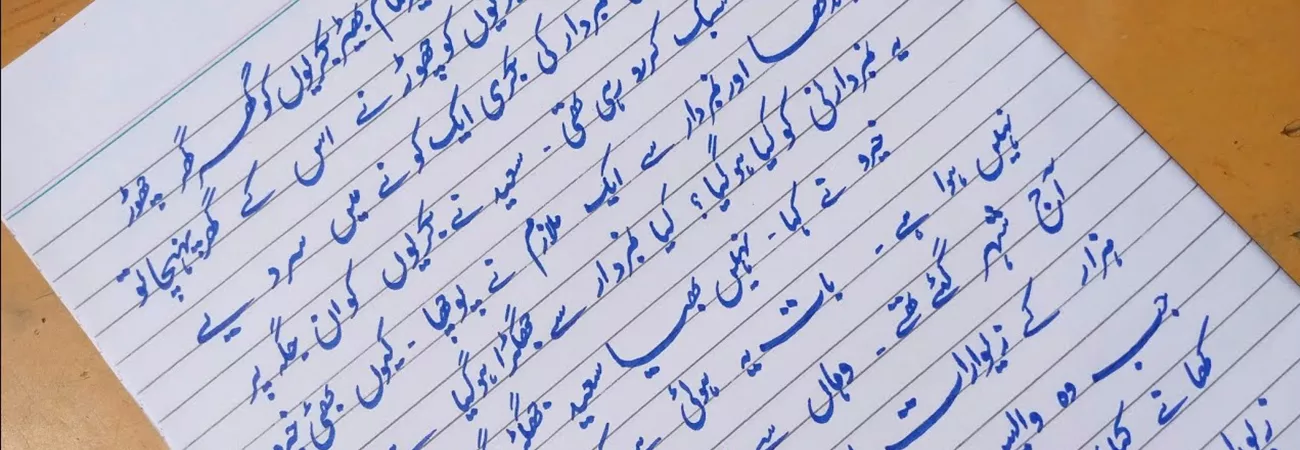 تمام بھیڑ بکریوں کو گھر گھر چھوڑ
بکریوں کو چھوڑنے اس کے گھر پہنچا تو
نمبردار کی بکری ایک کونے میں سر دیے
سبک کر رو رہی تھی۔ سعید نے بکریوں کو ان جگہ پر
اور نمبردار سے ایک ملازم نے پوچھا۔ کیوں بھئی
یہ نمبردارنی کو کیا ہو گیا؟ کیا نمبردار سے جھگڑا ہو گیا
خیرو نے کہا۔ نہیں بھیا سعید
نہیں ہوا ہے۔ بات یہ ہوئی
آج شہر گئے تھے۔ وہاں سے
ہزار کے زیوارات
جب وہ
کھانے